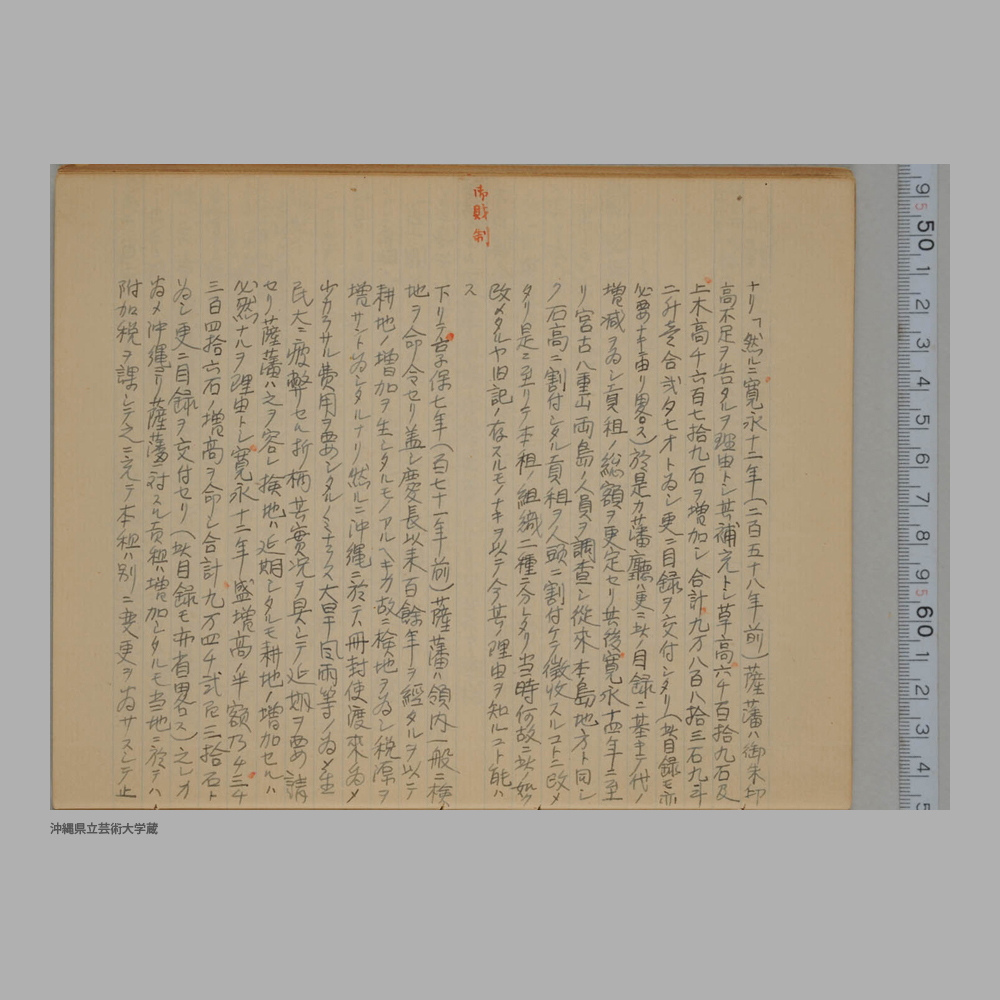 御財制
ナリ「然ルニ寛永十二年(二百五十八年前)薩藩ハ御朱印
高不足ヲ告タルヲ理由トシ其補充トシ草高六千百拾九石及
上木高千六百七拾九石ヲ増加シ合計九万八百八拾三石九斗
二升壱合弐夕七オトゐシ更ニ目録ヲ交付シタリ(其目録モ亦
必要ナキ由リ畧ス)於是カ藩廳ハ更ニ此ノ目録ニ基キテ代ノ
増減ヲゐシ貢租ノ総額ヲ更定セリ其後寛永十四年ニ至
リ宮古八重山両島ノ人員ヲ調査シ従来本島地方ト同シ
ク石高ニ割付シタル貢租ヲ人頭ニ割付ケテ徴收スルコトニ改メ
タリ是ニ至リテ本租ノ組織二種ニ分レタリ当時何故ニ此ノ如ク
改メタルヤ旧記ノ存スルモノナキヲ以テ今其ノ理由ヲ知ルコト能ハ
ス
下リテ享保七年(百七十一年前)薩藩ハ領内一般ニ検
地ヲ命令セリ蓋シ慶長以来百餘年ヲ經タルヲ以テ
耕地ノ増加ヲ生シタルモノアルヘキカ故ニ検地ヲゐシ税源ヲ
増サントゐシタルナリ然ルニ沖縄ニ於テハ冊封使渡來ゐメ
少カラサル費用ヲ要シタルノミナラス大旱風雨等ノゐメ生
民大ニ疲弊セル折柄其實況ヲ具シテ延期ヲ要請
セリ薩藩ハ之ヲ容レ検地ハ延期シタルモ耕地ノ増加セルハ
必然ナルヲ理由トシ寛永十二年盛増高ノ半額乃チ三千
三百四拾六石ノ増高ヲ命シ合計九万四千弐百三拾石ト
ゐシ更ニ目録ヲ交付セリ(此目録モ亦省畧ス)之レカ
ゐメ沖縄ヨリ薩藩ニ対スル貢租ハ増加シタルモ当地ニ於テハ
附加税ヲ課シテ之ニ充テ本租ハ別ニ変更ヲゐサスシテ止
9 5 50 1 2 3 4 5 6 7 8 9 5 60 1 2 3 4 5
沖縄県立芸術大学蔵